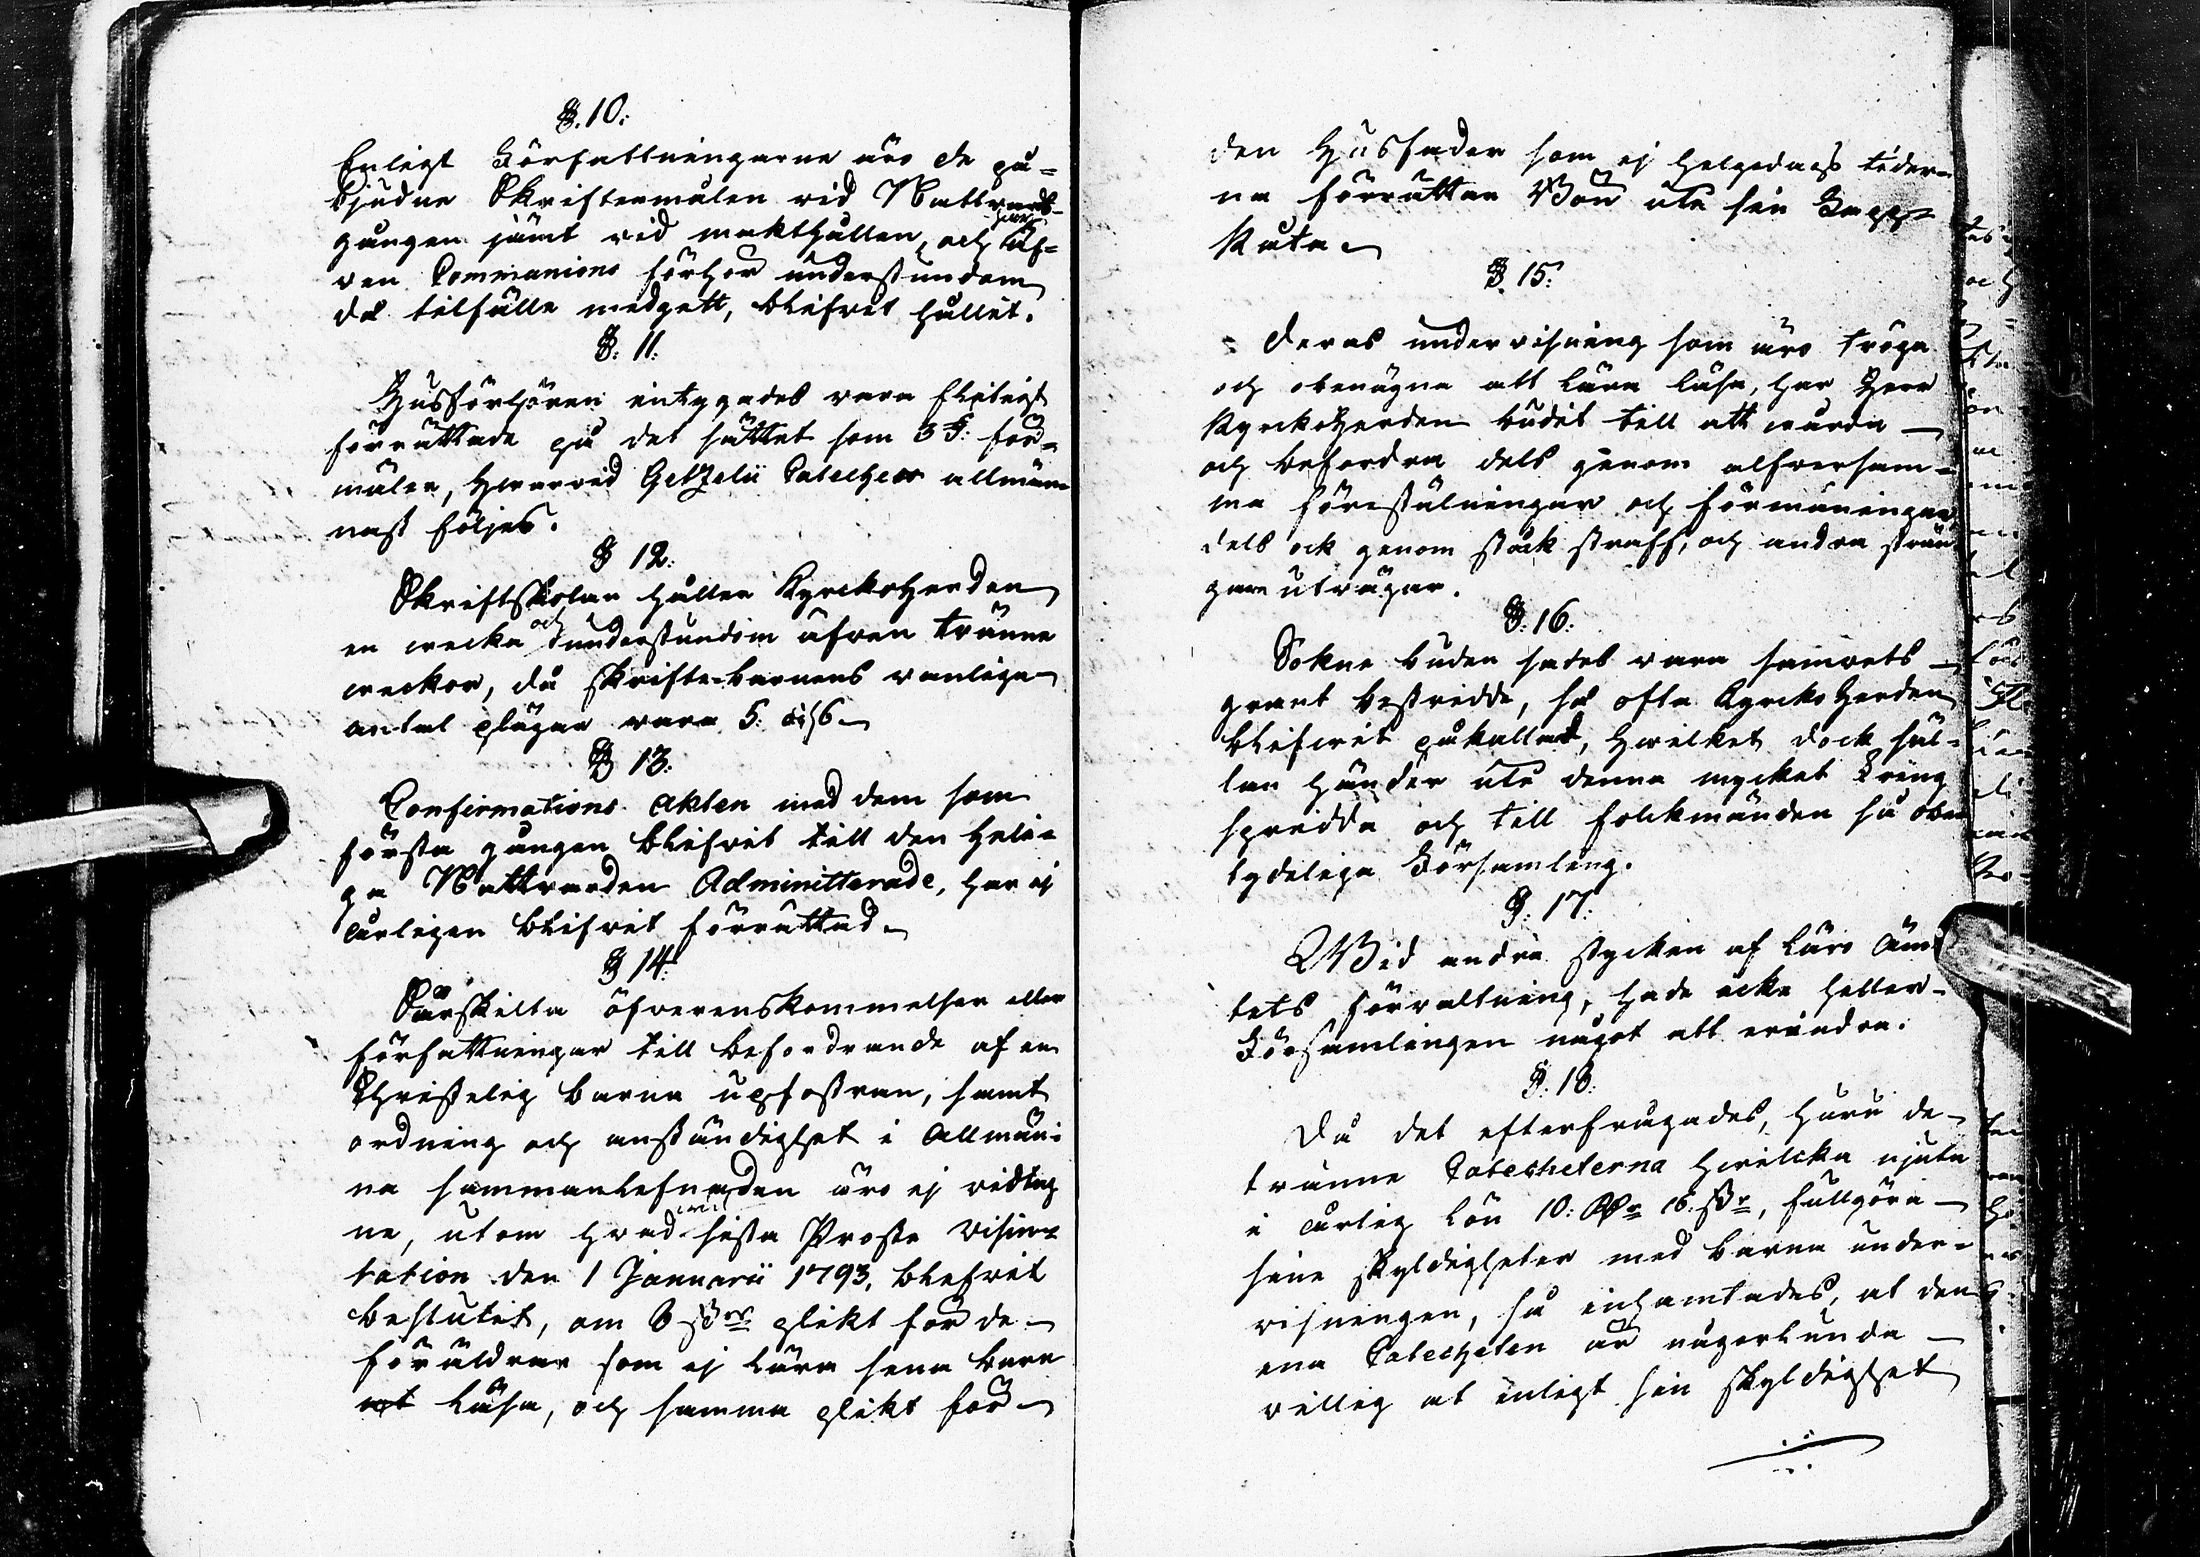 §. 10:
Enligt Författningarne äro de på-
bjudne Skriftermålen vid Nattvards-
gången jämt vid makthållen, och äf-
ven Communions förhör understundom
då tilfälle medgett, blifvit hållit.
§: 11:
Husförhören intygades vara fliteligt
förrättade på det sättet som 3 §: för-
mäler, hvarvid Getzelii Cateches allmän-
nast följes.
§ 12:
Skriftskolan håller Kyrckoherden
en wecka och understundom äfven tvänne
weckor, då skrifte-barnens vanliga
antal plägar vara 5: à 6
§ 13:
Confirmations Akten med dem som
första gången blifvit till den Heli-
ga Nattvarden Admitterade, har ej
årligen blifvit förrättad.
§ 14:
Särskilta öfverenskommelser eller
författningar till befordrande af en
Christelig barna upfostran, samt
ordning och anständighet i Allmän-
na sammanlefnaden äro ej vidtag
ne, utom hvad vid sista Prosts Visi-
tation den 1 Januarii 1793, blifvit
beslutit, om 8 plikt för de
föräldrar som ej lära sina barn
at läsa, och samma plikt för
den Husfader som ej helgedags tider-
na förrättar Bön uti sin Gapp-
Kuta.
§. 15:
Deras undervisning som äro tröga
och obenägna att lära läsa, har Herr
Kyrckoherden budit till att wårda
och befordra dels genom alfversam-
ma föreställningar och förmaningar
dels ock genom stock straff, och andra strän
gare utvägar.
§: 16:
Sokne buden sades vara samvets
grant bestridde, så ofta Kyrcko Herden
blifwit påkallad, hwilket dock säl-
lan händer uti denna mycket kring
spridda och till folckmängden så obe
tydeliga Församling.
§: 17:
Wid andra stycken af Läro Äm
tets förvaltning, hade icke heller
Församlingen något att erindra.
§. 18:
Då det efterfrågades, huru de
tvänne Catecheterna hvilcka njuta
i årlig lön 10: 16: fullgöra
sine skyldigheter med barna under-
visningen, så inhämtades, at den
ena Catecheten är någorlunda
villig at enligt sin skyldighet